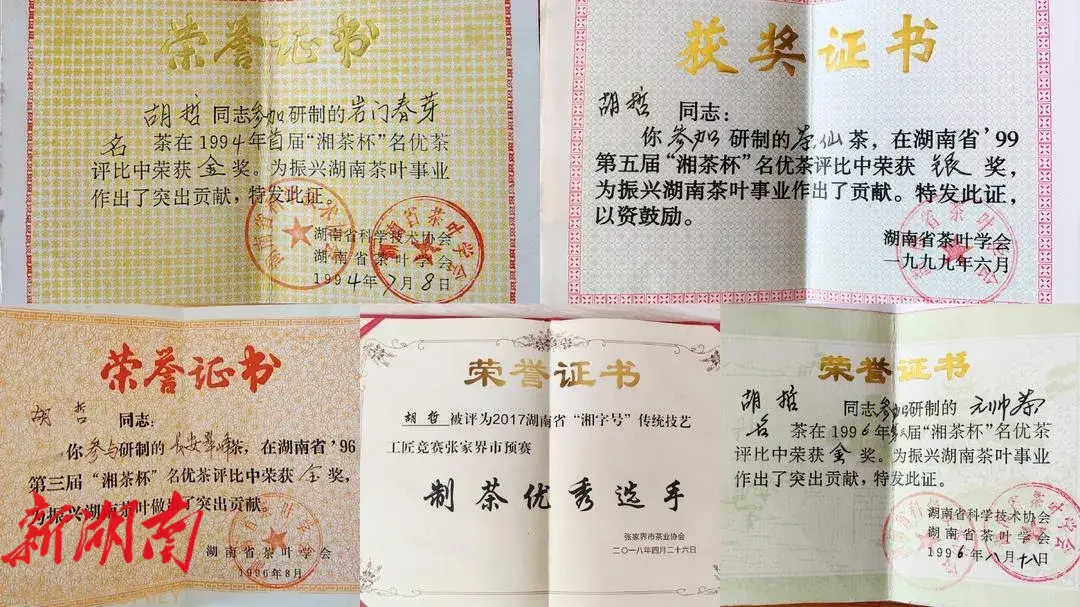 荣誉证书
胡哲同志参加研制的岩门春芽
名 茶在1994年首届“湘茶杯”名优茶
评比中荣获金奖。为振兴湖南茶叶事业
作出了突出贡献,特发此证。
湖南省科学技术协会
湖南省茶叶学会
1994年7月8日
获奖证书
胡哲 同志:
你参加研制的茶仙茶，在湖南省’99
第五届“湘茶杯”名优茶评比中荣获 银 奖，
为振兴湖南茶叶事业作出了贡献。特发此证，
以资鼓励。
湖南省茶叶学会
一九九九年六月
荣誉证书
胡哲 同志:
你参与研制的长安翠峰茶，在湖南省’96
第三届“湘茶杯”名优茶评比中荣获 金 奖，
为振兴湖南茶叶做出了突出贡献。
湖南省茶叶学会
1996年8月
新湖南
荣誉证书
胡哲 被评为2017湖南省“湘字号”传统技艺
工匠竞赛张家界市预赛
制茶优秀选手
张家界市茶业协会
二〇一八年四月二十六日
荣誉证书
胡哲 同志参加研制的 元帅茶
名 茶在1996年 届“湘茶杯”名优茶
评比中荣获金奖。为振兴湖南茶叶事业
作出了突出贡献，特发此证。
湖南省科学技术协会
湖南省茶叶学会
1996年八月十八日